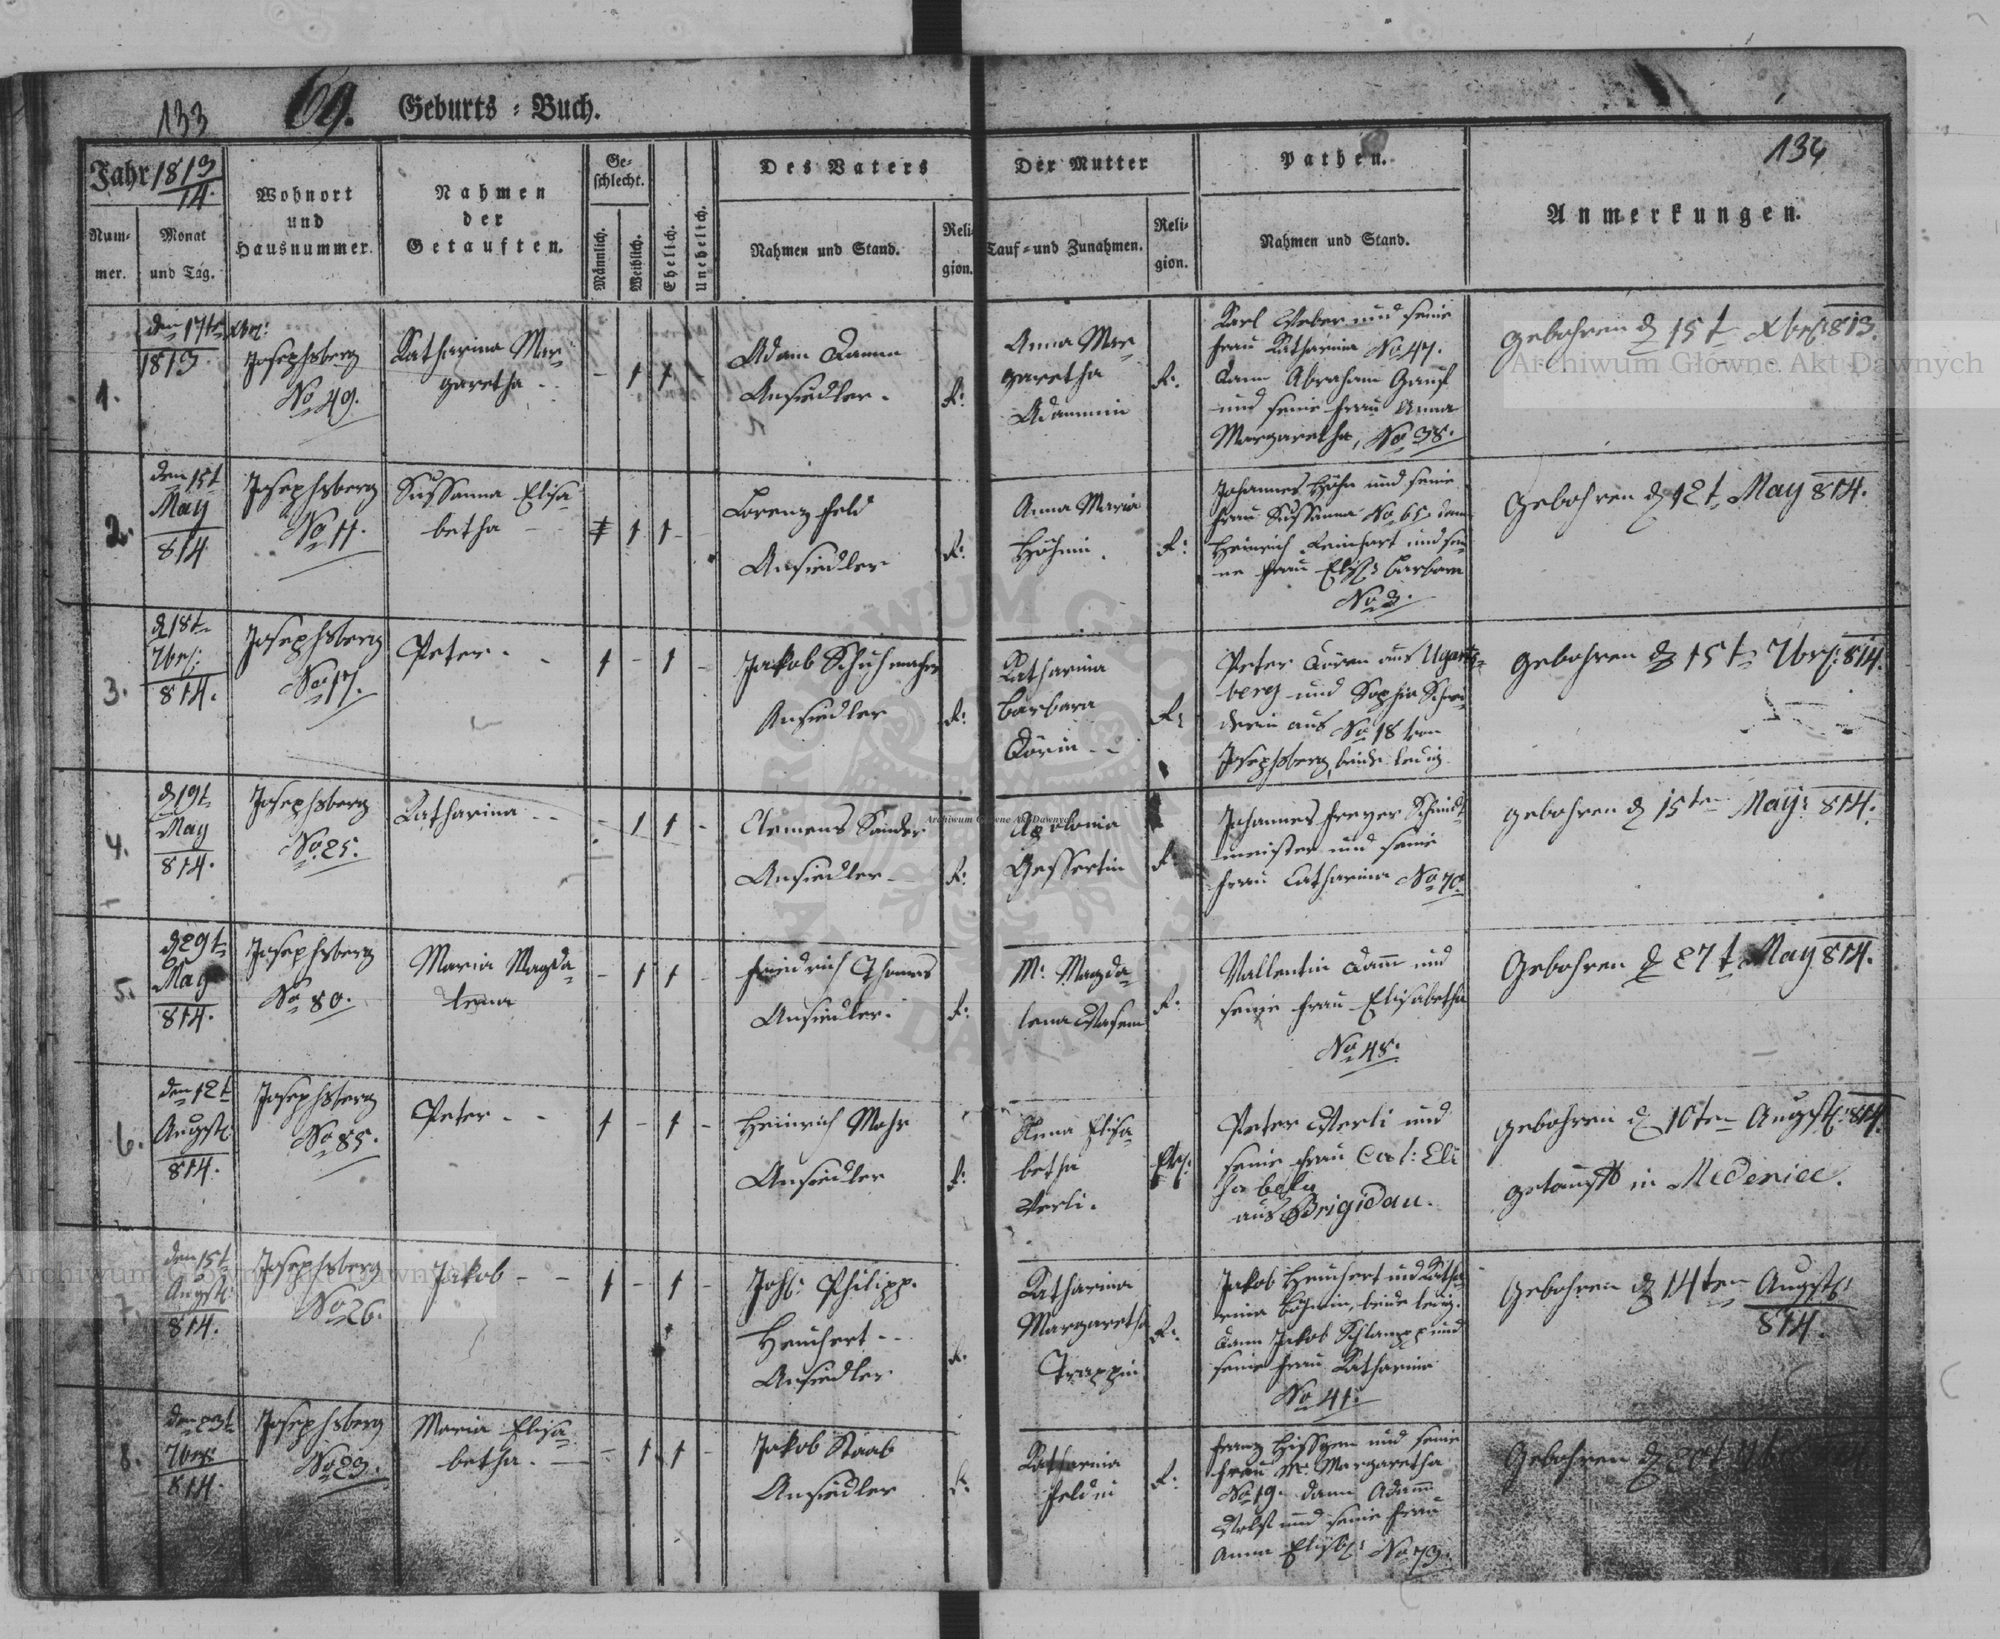 133
69.
Geburts-Buch.
134
Jahr 1813/14.
Nummer.
Monat und Tag.
Wohnort und Hausnummer.
Nahmen der Getauften.
Geschlecht.
Männlich.
Weiblich.
Ehelich.
Unehelich.
Des Vaters
Nahmen und Stand.
Religion.
Der Mutter
Tauf- und Zunahmen.
Religion.
Pathen.
Nahmen und Stand.
Anmerkungen.
1.
den 17t Xbr:
1813.
Josephsberg
No 49.
Katharina Mar-
garetha
- 1 1 -
Adam
Ansiedler.
R:
Anna Mar-
garetha
Adammin
R:
Karl Weber und seine
Frau Katharina No 47.
dann Abraham
und seine Frau Anna
Margaretha, No 38.
gebohren d 15t Xbr: 813.
2.
den 15t
May
814
Josephsberg
No 11.
Sussanna Elisa-
betha
1 1
Lorenz Feld
Ansiedler
R:
Anna Maria
Höhnin.
R:
Johannes Höhn und seine
Frau Sussanna No 65. dann
Heinrich Reinhart und sei-
ne Frau Elis: Barbara
No 2.
Gebohren d 12t May 814.
3.
d 18t
7br:
814.
Josephsberg
No 17.
Peter
1 - 1 -
Jakob Schuhmacher
Ansiedler
R:
Katharina
Barbara
Dörin
R:
Peter Dören aus Ugarts-
berg und Sophia Schnei-
derin aus No 18 von
Josephsberg, beide ledig
gebohren d 15t 7br: 814.
4.
d 19t
May
814.
Josephsberg
No 25.
Catharina
- 1 1 -
Clemens Sander
Ansiedler
R:
Apolonia
Gessertin
R:
Johannes Freyer Schmidt-
meister und seine
Frau Catharina No 70.
gebohren d 15ten May: 814.
5.
d 29t
May
814.
Josephsberg
No 80.
Maria Magda-
lena
- 1 1 -
Friedrich Thomas
Ansiedler.
R:
M: Magda-
lena
R:
Vallentin Damm und
seine Frau Elisabetha
No 45.
Gebohren d 27t May 814.
6.
den 12t
Augst:
814.
Josephsberg
No 85.
Peter
1 - 1 -
Heinrich Mohr
Ansiedler
R:
Anna Elisa-
betha
Werli.
Peter Werli und
seine Frau Cat: Eli
sabeta
aus Brigidau.
gebohren d 10ten Augst: 814.
getauft in Medenice.
7.
den 15t
Augst:
814.
Josephsberg
No 26.
Jakob
1 - 1 -
Joh: Philipp
Heuchert
Ansiedler
R:
Katharina
Margaretha
Trappin
R:
Jakob Heuchert und Katha-
rina Höhnin, beide ledig.
dann Jakob Schlampp und
seine Frau Katharina
No 41.
Gebohren d 14ten Augst:
814.
8.
den 23t
7br:
814.
Josephsberg
No 23.
Maria Elisa-
betha.
- 1 1 -
Jakob Staab
Ansiedler
R:
Katharina
Feldin
R:
Franz Hissgen und seine
Frau M: Margaretha
No 19. dann Adam
und seine Frau
Anna Elisb: No 73.
Gebohren d 20t
Archiwum Główne Akt Dawnych
Archiwum Główne Akt Dawnych
Archiwum Główne Akt Dawnych
ARCHIWUM GŁÓWNE AKT DAWNYCH